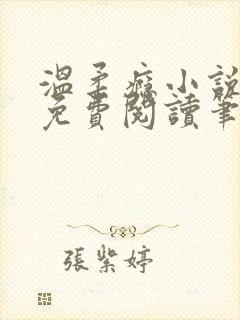 溫柔癮小說
免費閱讀筆
張紫婷